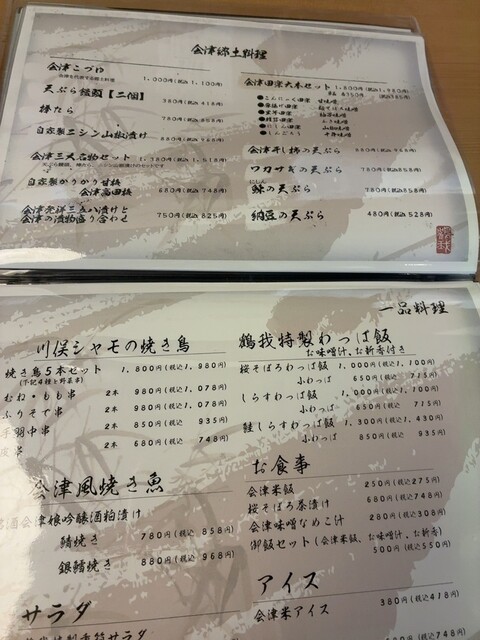 会津郷土料理
会津こづゆ 1,000円(税込1,100円)
天ぷら饅頭【二個】 380円(税込418円)
棒たら 780円(税込858円)
自家製ニシン山椒漬け 880円(税込968円)
会津三大名物セット 1,380円(税込1,518円)
自家製かりかり甘梅
会津高田梅 680円(税込748円)
会津発祥三五八漬けと
会津の漬物盛り合わせ 750円(税込825円)
会津田楽六本セット 1,800円(税込1,980円)
●こんにゃく田楽 甘味噌
●しんごろう
会津干し柿の天ぷら 880円(税込968円)
ワカサギの天ぷら 780円(税込858円)
にしん
鰊の天ぷら 780円(税込858円)
納豆の天ぷら 480円(税込528円)
一品料理
川俣シャモの焼き鳥
焼き鳥5本セット 1,800円(税込1,980円)
(下記4種と野菜串)
むね・もも串 2本 980円(税込1,078円)
ふりそで串 2本 980円(税込1,078円)
手羽中串 2本 850円(税込 935円)
2本 680円(税込 748円)
会津風焼き魚
酒会津娘吟醸酒粕漬け
鯖焼き 780円(税込 858円)
銀鱈焼き 880円(税込 968円)
サラダ
鶴我特製わっぱ飯
お味噌汁、お新香付き
桜そぼろわっぱ飯 1,000円(税込1,100円)
小わっぱ 650円(税込 715円)
しらすわっぱ飯 1,000円(税込1,100円)
小わっぱ 650円(税込 715円)
鮭しらすわっぱ飯 1,300円(税込1,430円)
小わっぱ 850円(税込 935円)
お食事
会津米飯 250円(税込275円)
桜そぼろ茶漬け 680円(税込748円)
会津味噌なめこ汁 280円(税込308円)
御飯セット(会津米飯、お味噌汁、お新香)
500円(税込550円)
アイス
会津米アイス 380円(税込418円)